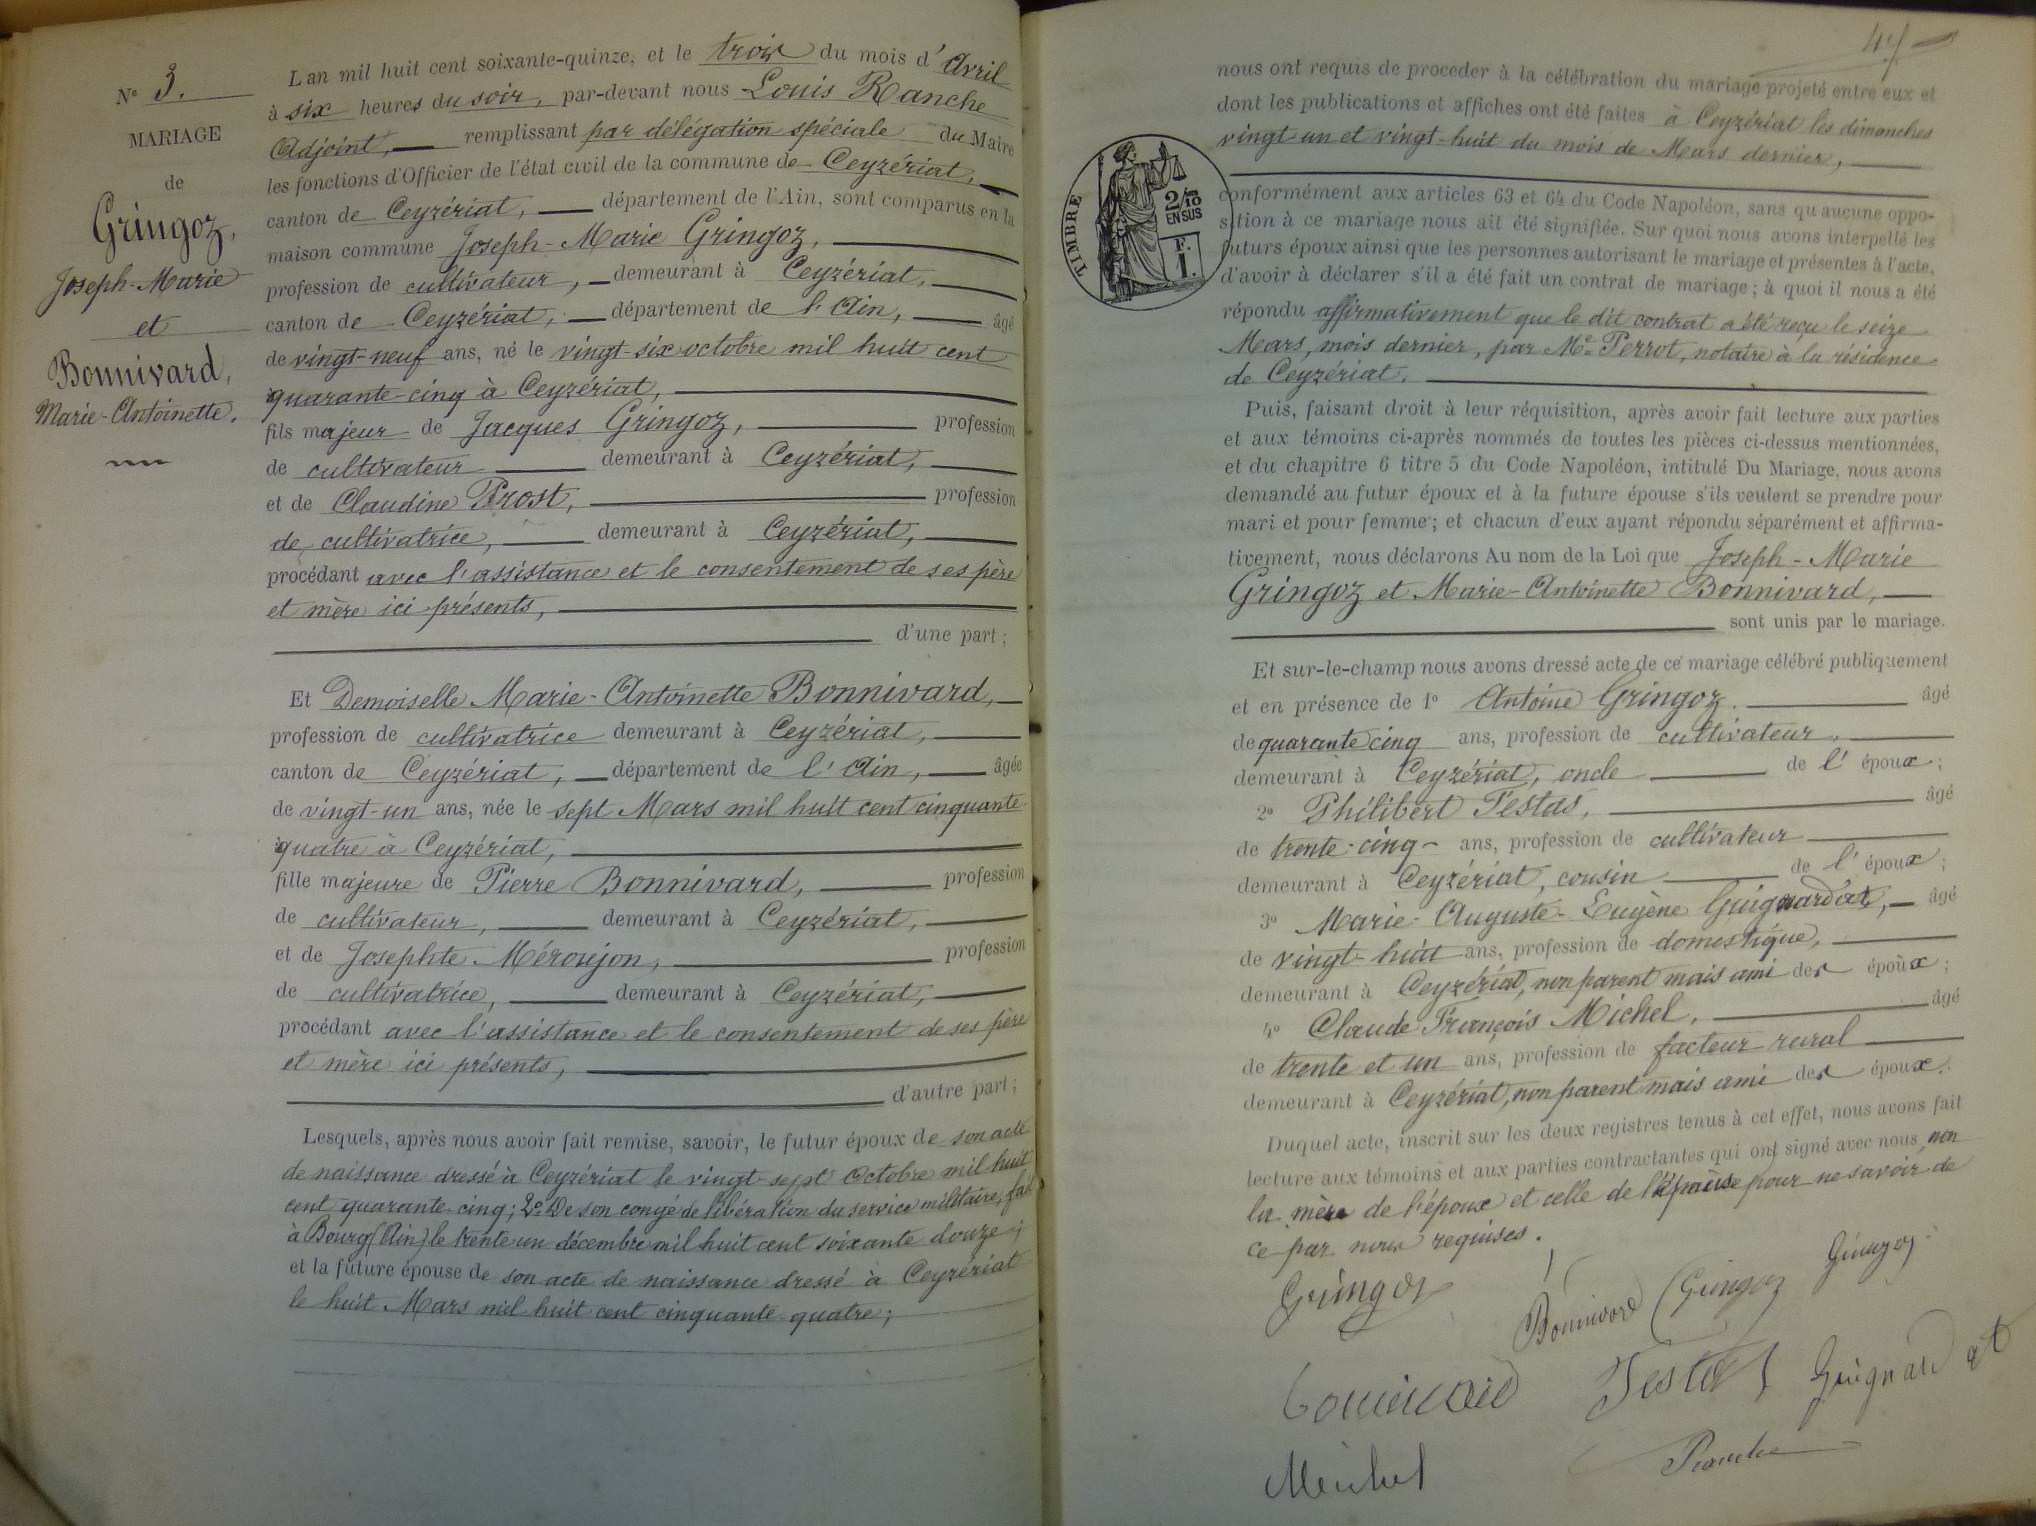 N° 3.
MARIAGE
de
Gringoz,
Joseph-Marie
et
Bonnivard,
Marie-Antoinette.
L'an mil huit cent soixante-quinze, et le trois du mois d'Avril
à six heures du soir, par-devant nous Louis Ranche
Adjoint, remplissant par délégation spéciale du Maire
les fonctions d'Officier de l'état civil de la commune de Ceyzériat,
canton de Ceyzériat, département de l'Ain, sont comparus en la
maison commune Joseph-Marie Gringoz,
profession de cultivateur, demeurant à Ceyzériat,
canton de Ceyzériat, département de l'Ain, âgé
de vingt-neuf ans, né le vingt-six octobre mil huit cent
quarante-cinq à Ceyzériat,
fils majeur de Jacques Gringoz, profession
de cultivateur demeurant à Ceyzériat,
et de Claudine Prost, profession
de cultivatrice, demeurant à Ceyzériat,
procédant avec l'assistance et le consentement de ses père
et mère ici présents,
d'une part;
Et Demoiselle Marie-Antoinette Bonnivard,
profession de cultivatrice demeurant à Ceyzériat,
canton de Ceyzériat, département de l'Ain, âgée
de vingt-un ans, née le sept Mars mil huit cent cinquante-
quatre à Ceyzériat,
fille majeure de Pierre Bonnivard, profession
de cultivateur, demeurant à Ceyzériat,
et de Josephte Méroujon, profession
de cultivatrice, demeurant à Ceyzériat,
procédant avec l'assistance et le consentement de ses père
et mère ici présents,
d'autre part;
Lesquels, après nous avoir fait remise, savoir, le futur époux de son acte
de naissance dressé à Ceyzériat le vingt-sept Octobre mil huit
cent quarante-cinq; 2° De son congé de libération du service militaire, fait
à Bourg (Ain) le trente un décembre mil huit cent soixante douze;
et la future épouse de son acte de naissance dressé à Ceyzériat
le huit Mars mil huit cent cinquante-quatre;
47
nous ont requis de procéder à la célébration du mariage projeté entre eux et
dont les publications et affiches ont été faites à Ceyzériat les dimanches
vingt-un et vingt-huit du mois de Mars dernier,
TIMBRE
2/10
EN SUS
F.
1.
conformément aux articles 63 et 64 du Code Napoléon, sans qu'aucune oppo-
sition à ce mariage nous ait été signifiée. Sur quoi nous avons interpellé les
futurs époux ainsi que les personnes autorisant le mariage et présentes à l'acte,
d'avoir à déclarer s'il a été fait un contrat de mariage; à quoi il nous a été
répondu affirmativement que le dit contrat a été reçu le seize
Mars, mois dernier, par Me Perrot, notaire à la résidence
de Ceyzériat.
Puis, faisant droit à leur réquisition, après avoir fait lecture aux parties
et aux témoins ci-après nommés de toutes les pièces ci-dessus mentionnées,
et du chapitre 6 titre 5 du Code Napoléon, intitulé Du Mariage, nous avons
demandé au futur époux et à la future épouse s'ils veulent se prendre pour
mari et pour femme; et chacun d'eux ayant répondu séparément et affirma-
tivement, nous déclarons Au nom de la Loi que Joseph-Marie
Gringoz et Marie-Antoinette Bonnivard,
sont unis par le mariage.
Et sur-le-champ nous avons dressé acte de ce mariage célébré publiquement
et en présence de 1° Antoine Gringoz. âgé
de quarante cinq ans, profession de cultivateur,
demeurant à Ceyzériat, oncle de l'époux;
2° Philibert Testas, âgé
de trente-cinq ans, profession de cultivateur
demeurant à Ceyzériat, cousin de l'époux;
3° Marie-Auguste-Eugène Guignardat, âgé
de vingt-huit ans, profession de domestique,
demeurant à Ceyzériat, non parent mais ami des époux;
4° Claude François Michel, âgé
de trente et un ans, profession de facteur rural
demeurant à Ceyzériat, non parent mais ami des époux.
Duquel acte, inscrit sur les deux registres tenus à cet effet, nous avons fait
lecture aux témoins et aux parties contractantes qui ont signé avec nous, non
la mère de l'époux et celle de l'épouse pour ne savoir de
ce par nous requises.
Gringoz
Bonnivard Gringoz Gringoz
Bonnivard Testas Guignardat
Michel Ranche